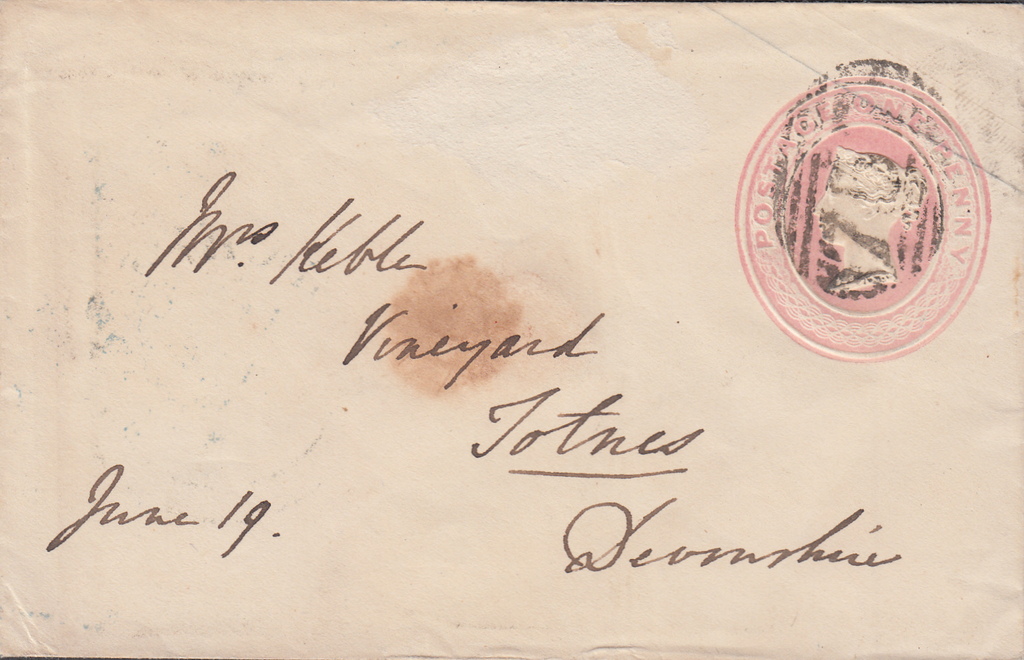 POSTAGE ONE PENNY
Mrs. Keble
Vineyard
Totnes
June 19.
Devonshire